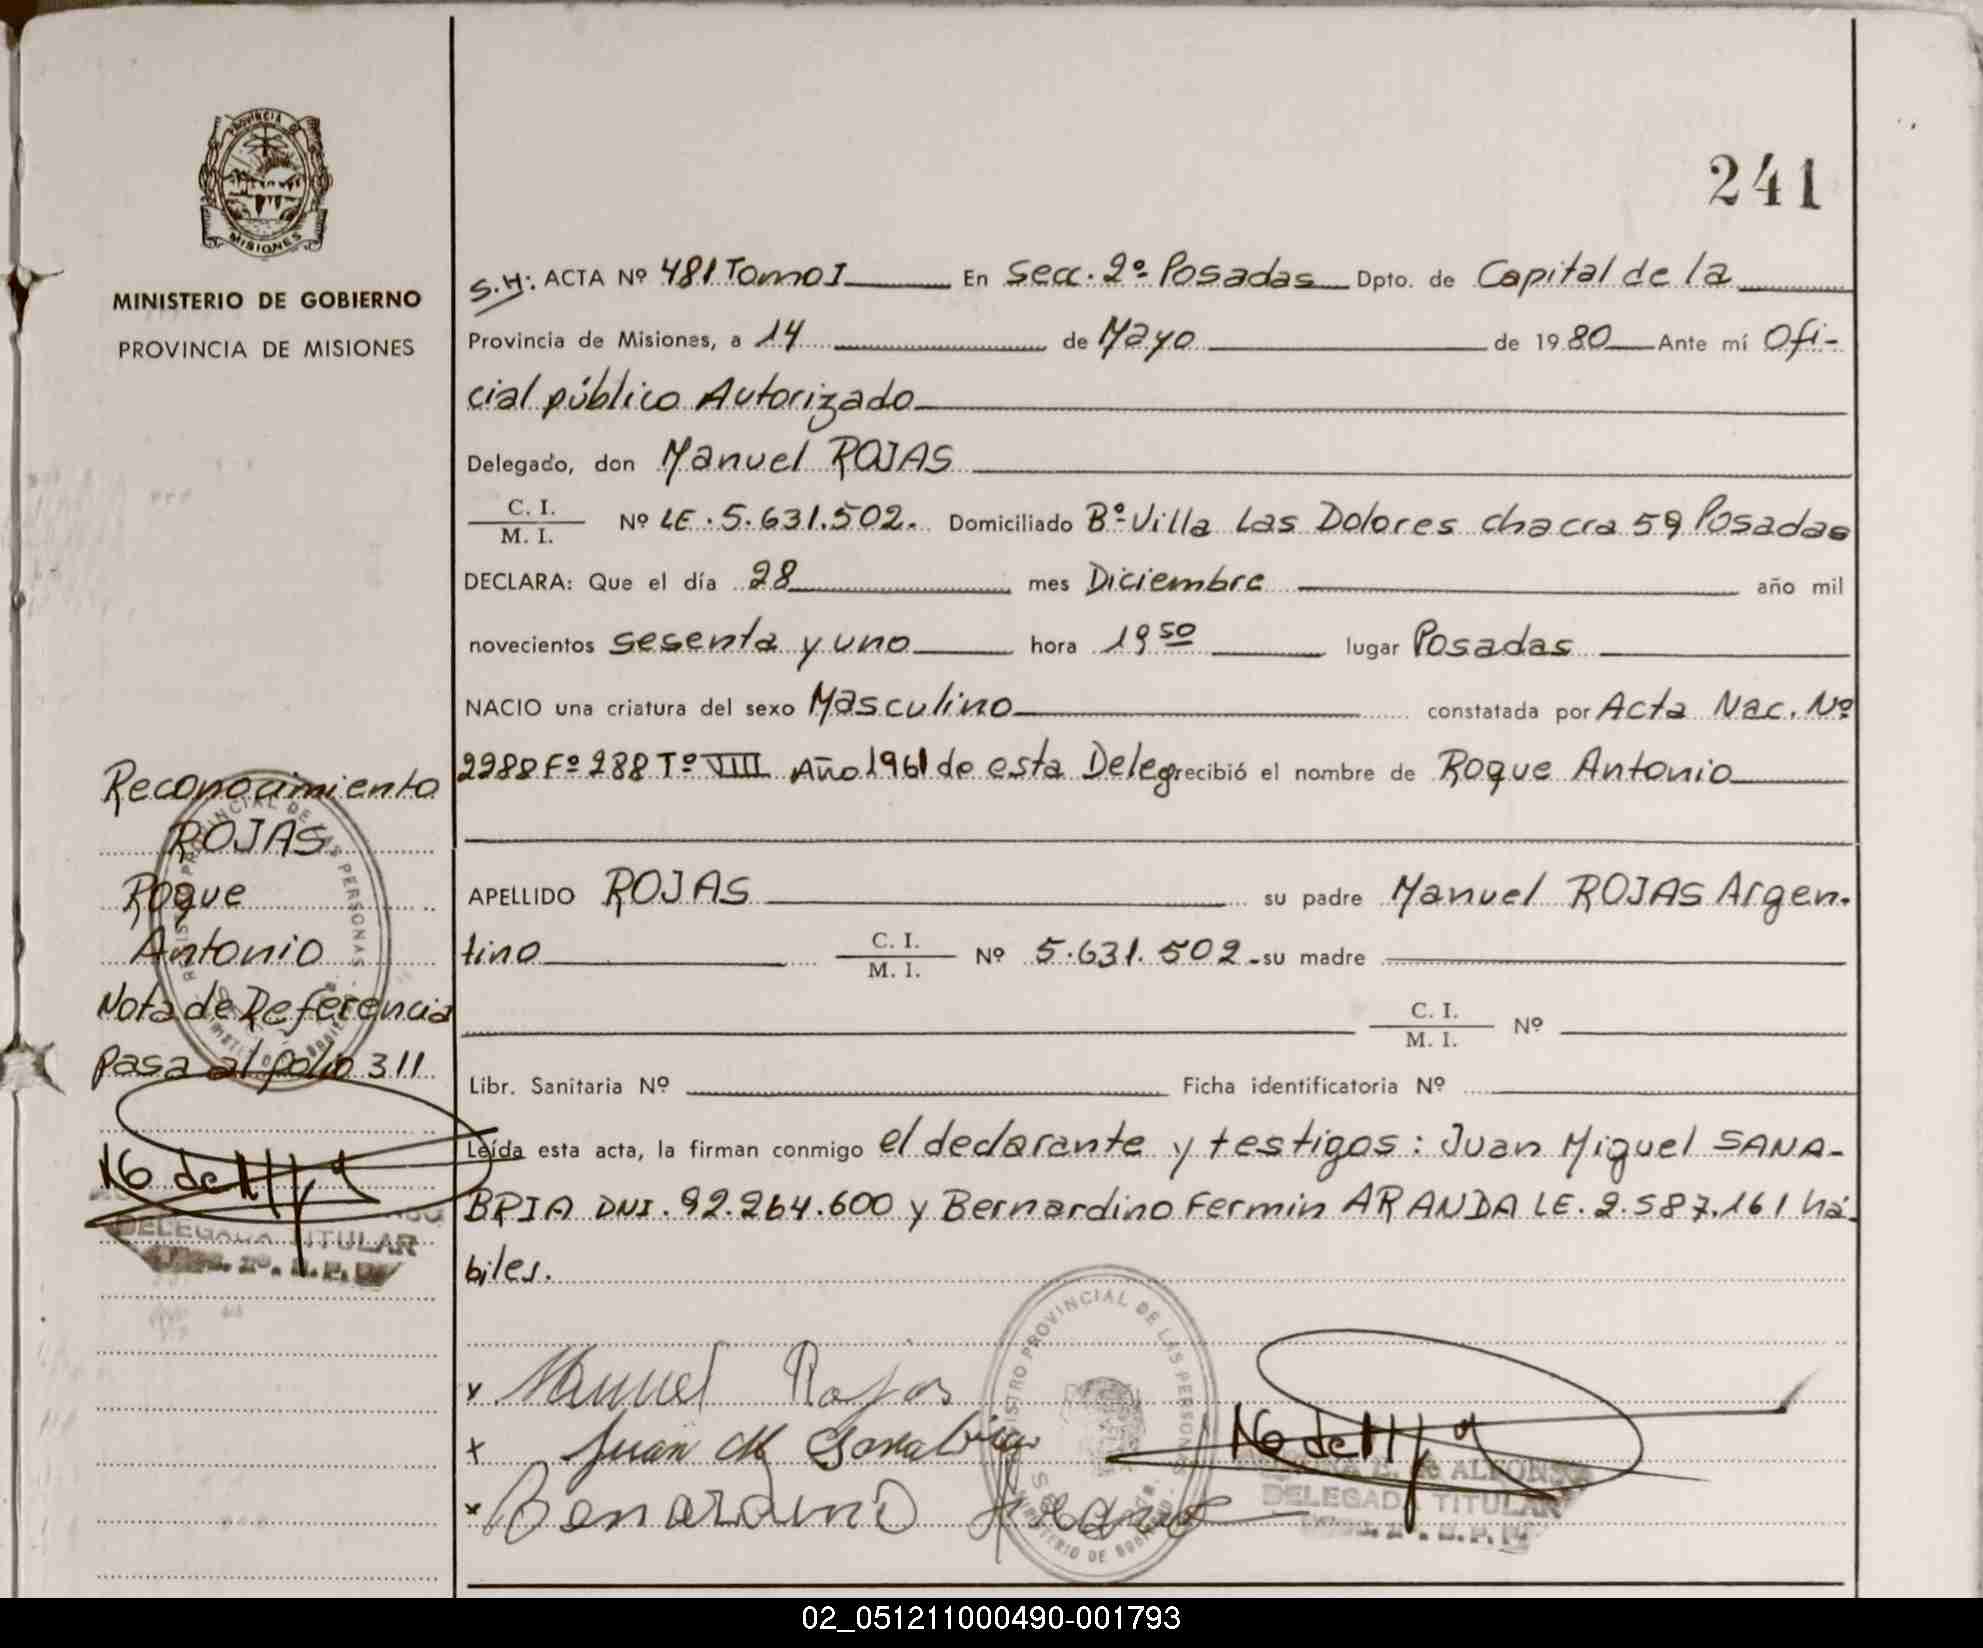 241
PROVINCIA DE
MISIONES
MINISTERIO DE GOBIERNO
PROVINCIA DE MISIONES
S.H: ACTA Nº 481 Tomo I En Secc. 2º Posadas Dpto. de Capital de la
Provincia de Misiones, a 14 de Mayo de 1980 Ante mí Ofi-
cial público Autorizado
Delegado, don Manuel ROJAS
C. I.
M. I. Nº LE. 5.631.502. Domiciliado Bº Villa Las Dolores chacra 59 Posadas
DECLARA: Que el día 28 mes Diciembre año mil
novecientos sesenta y uno hora 19 50 lugar Posadas
NACIO una criatura del sexo Masculino constatada por Acta Nac. Nº
2288 Fº 288 Tº VIII Año 1961 de esta Deleg recibió el nombre de Roque Antonio
APELLIDO ROJAS su padre Manuel ROJAS Argen-
tino C. I.
M. I. Nº 5.631.502 su madre
C. I.
M. I. Nº
Libr. Sanitaria Nº Ficha identificatoria Nº
Leída esta acta, la firman conmigo el declarante y testigos: Juan Miguel SANA-
BRIA DNI. 92.264.600 y Bernardino Fermin ARANDA LE. 2.587.161 há-
biles.
Reconocimiento
ROJAS
Roque
Antonio
Nota de Referencia
pasa al folio 311
DELEGADA TITULAR
x Manuel Rojas
x Juan M Sanabria
x Bernardino
REGISTRO PROVINCIAL DE LAS PERSONAS
MINISTERIO DE GOBIERNO
DE ALFONSO
DELEGADA TITULAR
02_051211000490-001793